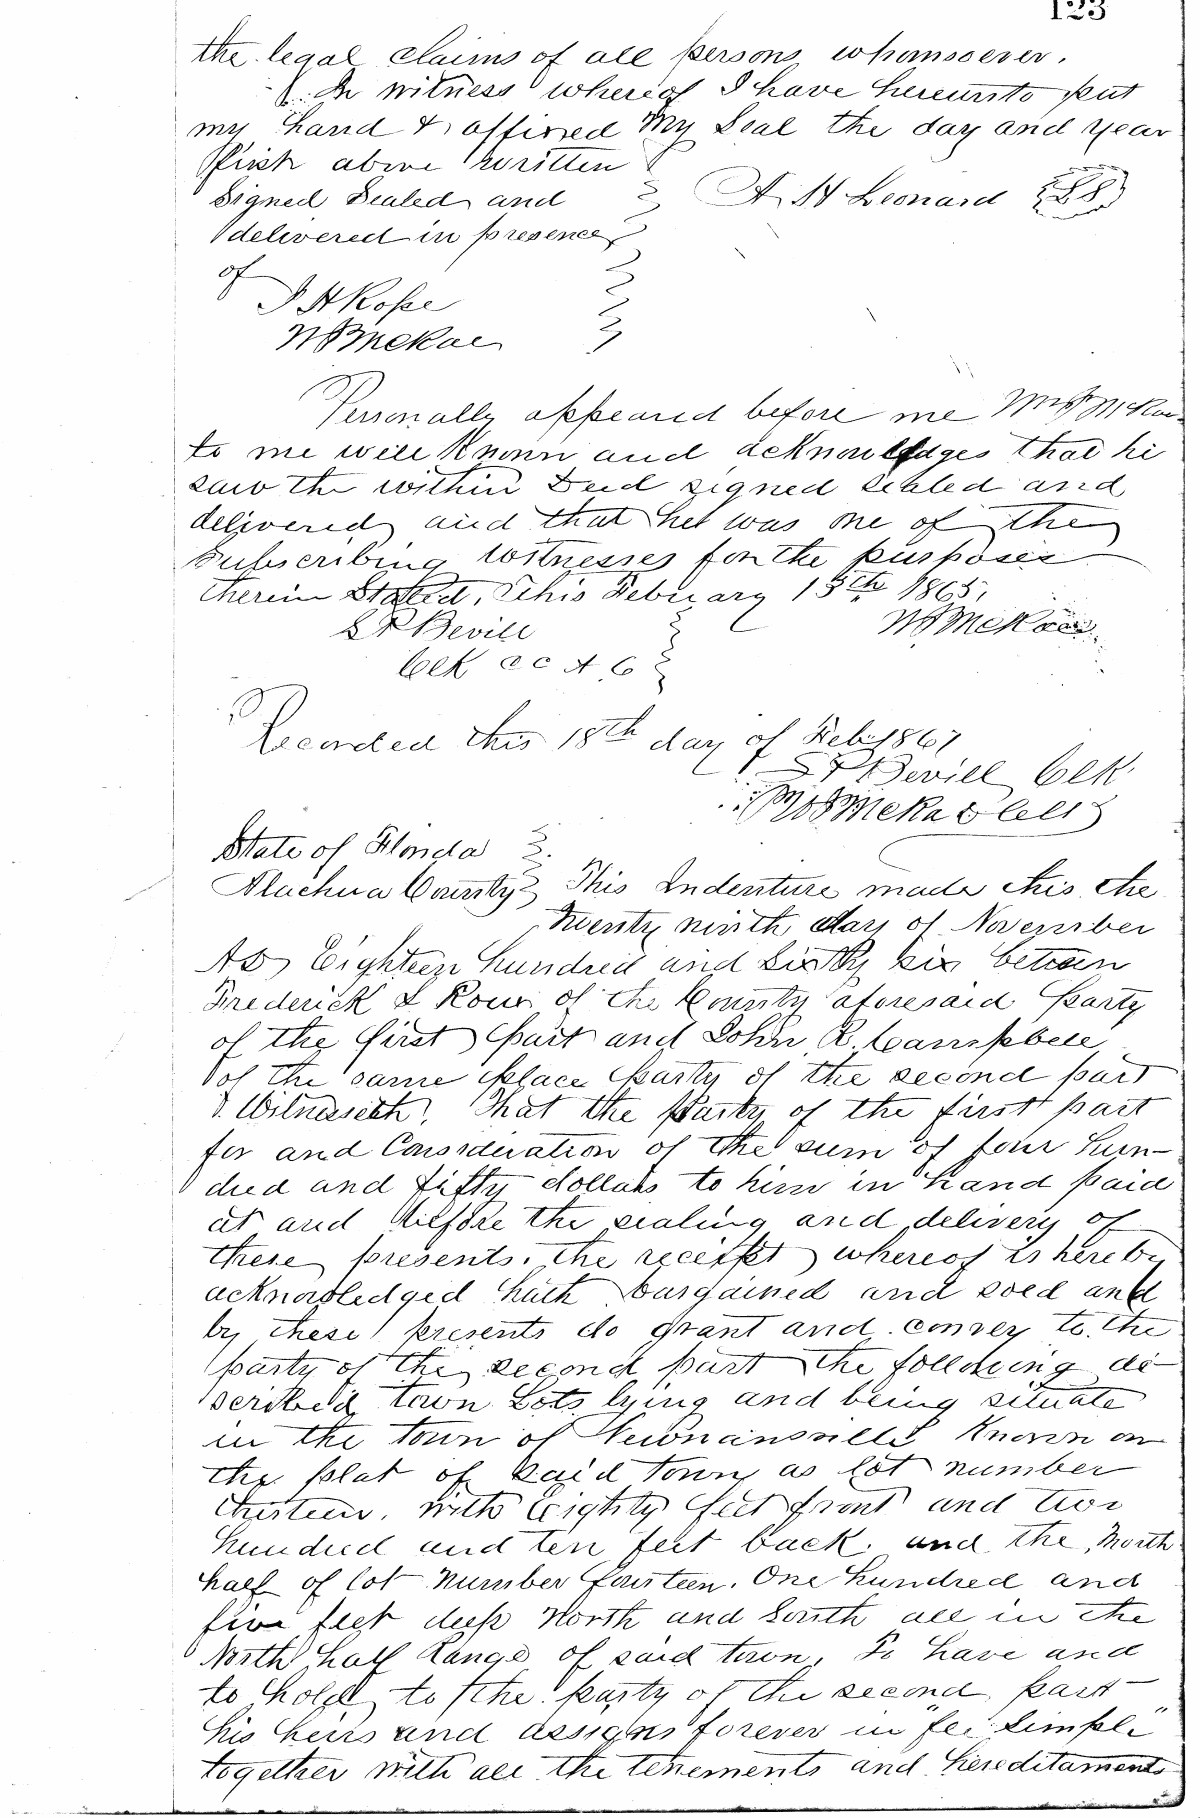 123
the legal claims of all persons whomsoever.
In witness whereof I have hereunto put
my hand & affixed my Seal the day and year
first above written
Signed Sealed and A. H Leonard
delivered in presence
of
J H Rope
W B McKae
Personally appeared before me McKae
to me well Known and acknowledges that he
saw the within Deed signed sealed and
delivered and that he was one of the
subscribing witnesses for the purposes
therein Stated, This February 15th 1865,
S P Bevill W B McKae
Clk CC A C
Recorded this 18th day of Feb 1867
S P Bevill Clk
State of Florida
Alachua County This Indenture made this the
twenty ninth day of November
AD Eighteen hundred and Sixty six between
Frederick L Roux of the County aforesaid party
of the first part and John R. Campbell
of the same place party of the second part
Witnesseth, That the Party of the first part
for and Consideration of the sum of four hun-
dred and fifty dollars to him in hand paid
at and before the sealing and delivery of
these presents, the receipt whereof is hereby
acknowledged hath bargained and sold and
by these presents do grant and convey to the
party of the second part the following de-
scribed town Lots lying and being situate
in the town of Newnansville Known on
the plat of said town as lot number
thirteen, with Eighty feet front and two
hundred and ten feet back, and the North
half of lot number fourteen. One hundred and
five feet deep North and South all in the
North half Range of said town, To have and
to hold to the party of the second part
his heirs and assigns forever in "fee simple"
together with all the tenements and hereditaments